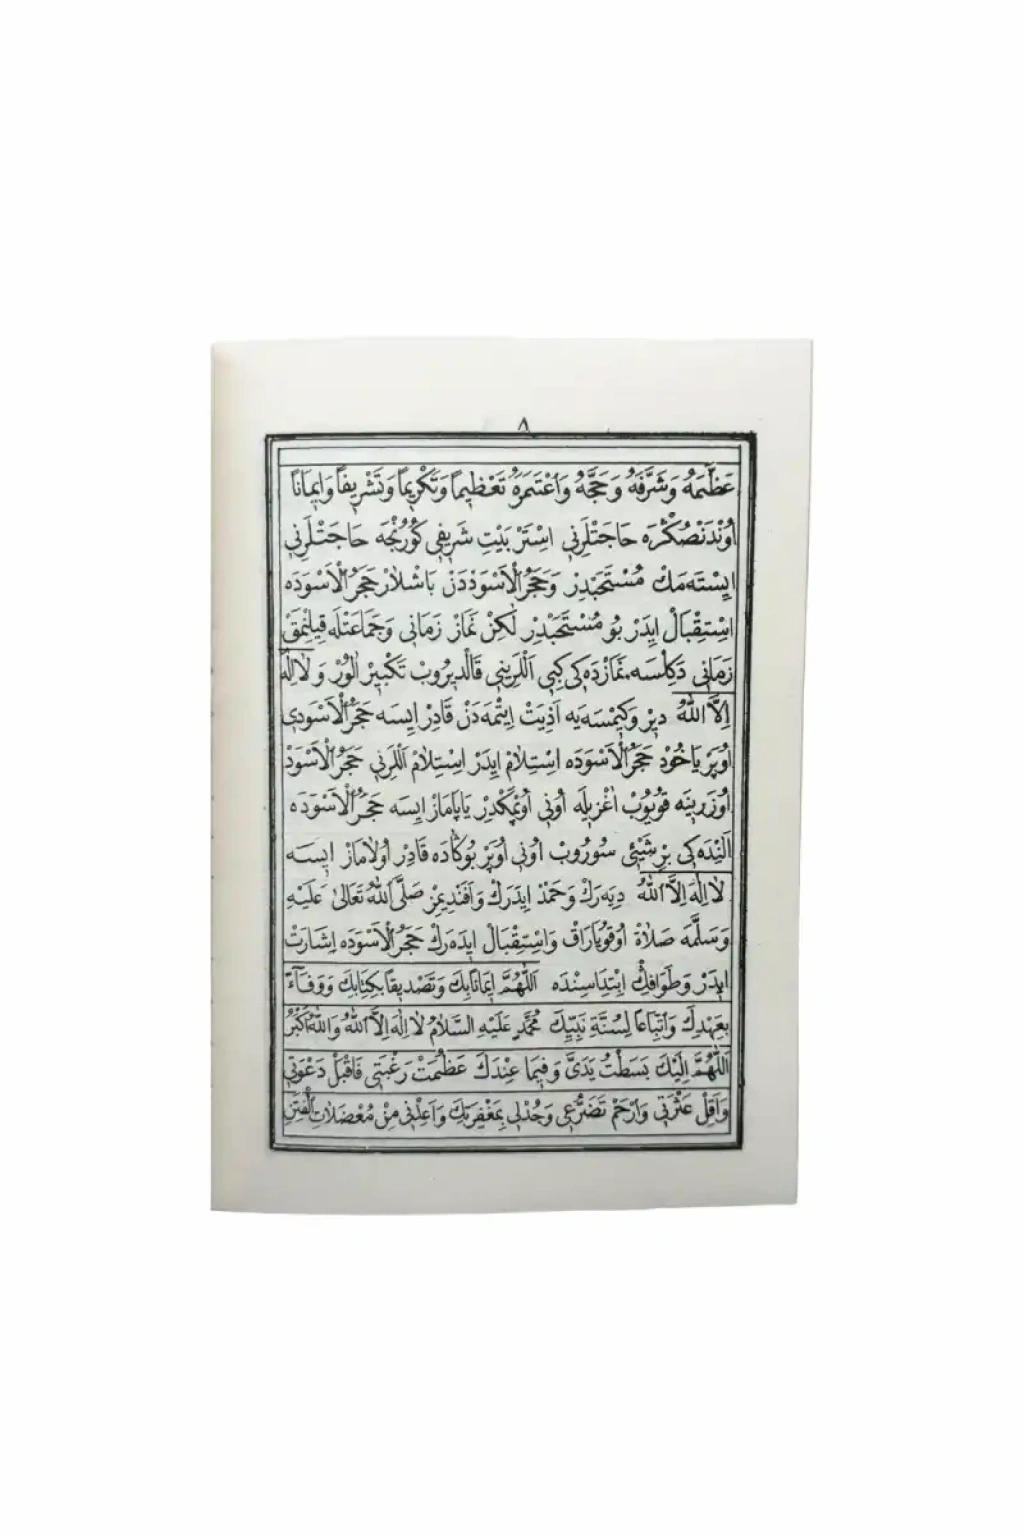 ٨
عَظَّمَهُ وَشَرَّفَهُ وَحَجَّهُ وَاعْتَمَرَهُ تَعْظِيماً وَتَكْرِيماً وَتَشْرِيفاً وَاِيمَاناً
اُونْدَنْصُكْرَه حَاجَتْلَرِنِي اِسْتَرْ بَيْتِ شَرِيفِي كُورُنْجَه حَاجَتْلَرِنِي
اِيسْتَه مَكْ مُسْتَحَبْدِرْ وَحَجَرُالْاَسْوَدْدَنْ بَاشْلَارْ حَجَرُالْاَسْوَدَه
اِسْتِقْبَالْ اِيدَرْ بُو مُسْتَحَبْدِرْ لٰكِنْ نَمَازْ زَمَانِي وَجَمَاعَتْلَه قِيلِنْمَقْ
زَمَانِي دَكِلْسَه نَمَازْدَه كِي كِبِي اَلْلَرِينِي قَالْدِيرُوبْ تَكْبِيرْ اَلُورْ وَلَا اِلٰهَ
اِلَّا اللّٰهُ دِيرْ وَكِيمْسَه يَه اَذِيَتْ اِيتْمَه دَنْ قَادِرْ اِيسَه حَجَرُالْاَسْوَدِي
اُوپَرْ يَاخُودْ حَجَرُالْاَسْوَدَه اِسْتِلَامْ اِيدَرْ اِسْتِلَامْ اَلْلَرِنِي حَجَرُالْاَسْوَدْ
اُوزَرِينَه قُويُوبْ اَغْزِيلَه اُونِي اُوپْمَكْدِرْ يَاپَامَازْ اِيسَه حَجَرُالْاَسْوَدَه
اَلِنْدَه كِي بِرْ شَيْئِي سُورُوبْ اُونِي اُوپَرْ بُوكَادَه قَادِرْ اُولَامَازْ اِيسَه
لَا اِلٰهَ اِلَّا اللّٰهُ دِيَه رَكْ وَحَمْدْ اِيدَرَكْ وَاَفَنْدِيمِزْ صَلَّى اللّٰهُ تَعَالٰى عَلَيْهِ
وَسَلَّمَه صَلَاةْ اُوقُويَارَاقْ وَاِسْتِقْبَالْ اِيدَه رَكْ حَجَرُالْاَسْوَدَه اِشَارَتْ
اِيدَرْ وَطَوَافِكْ اِبْتِدَاسِنْدَه اَللّٰهُمَّ اِيمَاناً بِكَ وَتَصْدِيقاً بِكِتَابِكَ وَوَفَاءً
بِعَهْدِكَ وَاتِّبَاعاً لِسُنَّةِ نَبِيِّكَ مُحَمَّدٍ عَلَيْهِ السَّلَامُ لَا اِلٰهَ اِلَّا اللّٰهُ وَاللّٰهُ اَكْبَرُ
اَللّٰهُمَّ اِلَيْكَ بَسَطْتُ يَدَيَّ وَفِيمَا عِنْدَكَ عَظُمَتْ رَغْبَتِي فَاقْبَلْ دَعْوَتِي
وَاَقِلْ عَثْرَتِي وَارْحَمْ تَضَرُّعِي وَجُدْلِي بِمَغْفِرَتِكَ وَاَعِذْنِي مِنْ مُعْضَلَاتِ الْفِتَنِ